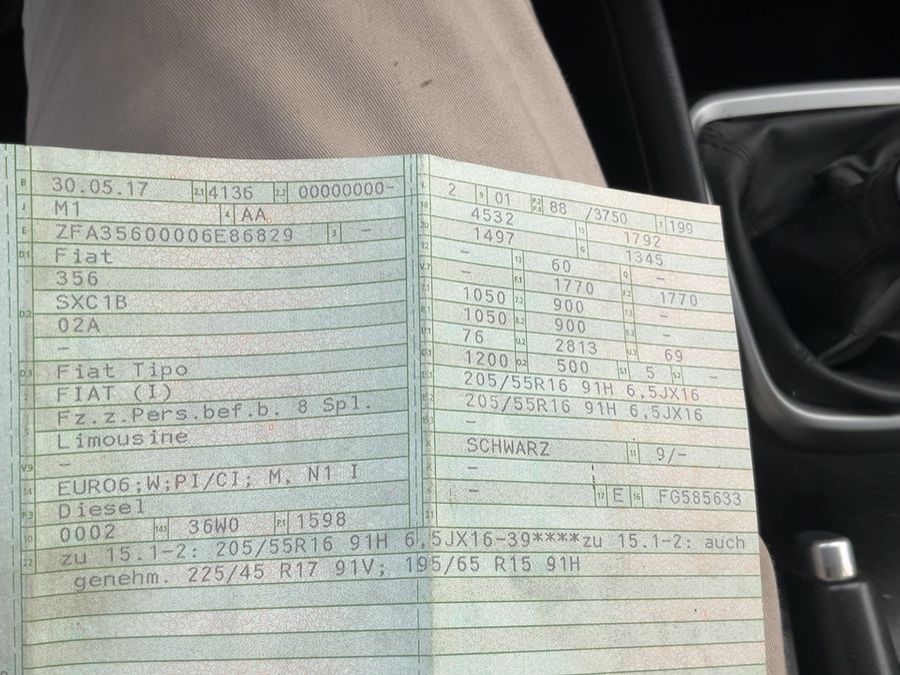 B 30.05.17 2.1 4136 2.2 00000000-
J M1 4 AA
E ZFA35600006E86829 3 -
D.1 Fiat
356
D.2 SXC1B
02A
-
D.3 Fiat Tipo
2 FIAT (I)
Fz.z.Pers.bef.b. 8 Spl.
5 Limousine
V.9 -
14 EURO6;W;PI/CI; M, N1 I
P.3 Diesel
10 0002 14.1 36W0 P.1 1598
L 2 9 01 P.2 P.4 88 /3750 T 199
18 4532 19 1792
20 1497 G 1345
12 - 13 60 Q -
V.7 - F.1 1770 F.2 1770
7.1 1050 7.2 900 7.3 -
8.1 1050 8.2 900 8.3 -
U.1 76 U.2 2813 U.3 69
O.1 1200 O.2 500 S.1 5 S.2 -
15.1 205/55R16 91H 6,5JX16
15.2 205/55R16 91H 6,5JX16
15.3 -
R SCHWARZ 11 9/-
K -
6 - 17 E 16 FG585633
21
22 zu 15.1-2: 205/55R16 91H 6,5JX16-39****zu 15.1-2: auch
genehm. 225/45 R17 91V; 195/65 R15 91H